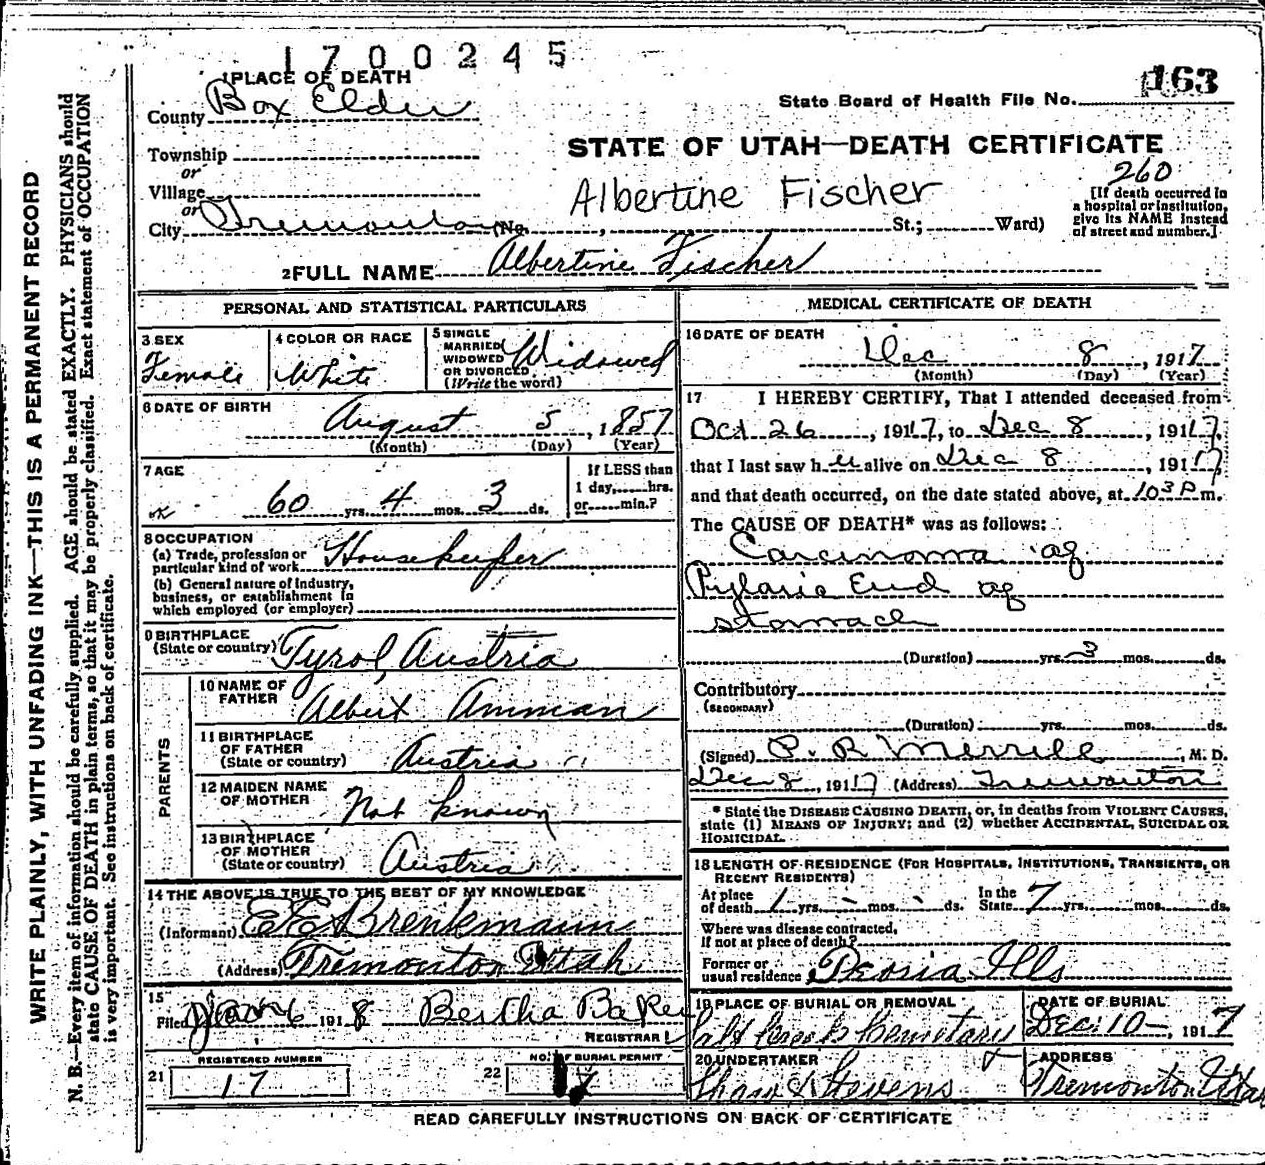 1700245
1 PLACE OF DEATH
163
County Box Elder
State Board of Health File No.
Township
or
STATE OF UTAH—DEATH CERTIFICATE
260
Village
or
Albertine Fischer
[If death occurred in
a hospital or institution,
give its NAME instead
of street and number.]
City Tremonton (No. , St.; Ward)
2 FULL NAME Albertine Fischer
PERSONAL AND STATISTICAL PARTICULARS
3 SEX
Female
4 COLOR OR RACE
White
5 SINGLE
MARRIED
WIDOWED
OR DIVORCED
(Write the word)
Widowed
6 DATE OF BIRTH
August 5, 1857
(Month) (Day) (Year)
7 AGE
60 yrs. 4 mos. 3 ds.
If LESS than
1 day, hrs.
or min.?
8 OCCUPATION
(a) Trade, profession or
particular kind of work Housekeeper
(b) General nature of industry,
business, or establishment in
which employed (or employer)
9 BIRTHPLACE
(State or country) Tyrol, Austria
PARENTS
10 NAME OF
FATHER Albert Amman
11 BIRTHPLACE
OF FATHER
(State or country) Austria
12 MAIDEN NAME
OF MOTHER Not known
13 BIRTHPLACE
OF MOTHER
(State or country) Austria
14 THE ABOVE IS TRUE TO THE BEST OF MY KNOWLEDGE
(Informant) E E Brenkmann
(Address) Tremonton Utah
15
Filed Jan 6 1918 Bertha Baker
REGISTRAR
REGISTERED NUMBER
21 17
NO. OF BURIAL PERMIT
22
MEDICAL CERTIFICATE OF DEATH
16 DATE OF DEATH
Dec 8, 1917
(Month) (Day) (Year)
17 I HEREBY CERTIFY, That I attended deceased from
Oct 26, 1917, to Dec 8, 1917,
that I last saw her alive on Dec 8, 1917
and that death occurred, on the date stated above, at 10 3 P m.
The CAUSE OF DEATH* was as follows:
Carcinoma of
Pyloric End of
stomach
(Duration) yrs. 3 mos. ds.
Contributory
(SECONDARY)
(Duration) yrs. mos. ds.
(Signed) P. R. Merrill, M. D.
Dec 8, 1917 (Address) Tremonton
* State the DISEASE CAUSING DEATH, or, in deaths from VIOLENT CAUSES,
state (1) MEANS OF INJURY; and (2) whether ACCIDENTAL, SUICIDAL OR
HOMICIDAL.
18 LENGTH OF RESIDENCE (FOR HOSPITALS, INSTITUTIONS, TRANSIENTS, OR
RECENT RESIDENTS)
At place
of death 1 yrs. - mos. - ds.
In the
State 7 yrs. mos. ds.
Where was disease contracted,
If not at place of death?
Former or
usual residence Peoria Ills
19 PLACE OF BURIAL OR REMOVAL
Salt Creek Cemetary
DATE OF BURIAL
Dec. 10—, 1917
20 UNDERTAKER
Shaw & Stevens
ADDRESS
Tremonton Utah
READ CAREFULLY INSTRUCTIONS ON BACK OF CERTIFICATE
WRITE PLAINLY, WITH UNFADING INK—THIS IS A PERMANENT RECORD
N. B.—Every item of information should be carefully supplied. AGE should be stated EXACTLY. PHYSICIANS should
state CAUSE OF DEATH in plain terms, so that it may be properly classified. Exact statement of OCCUPATION
is very important. See instructions on back of certificate.